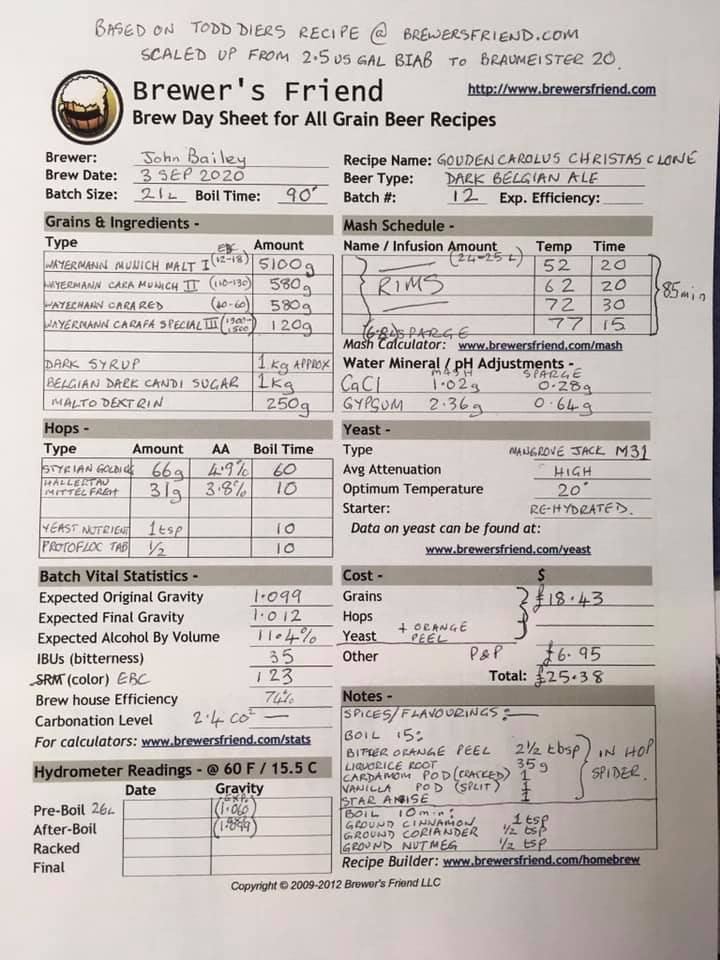 BASED ON TODD DIERS RECIPE @ BREWERSFRIEND.COM
SCALED UP FROM 2.5 US GAL BIAB TO BRAUMEISTER 20.
Brewer's Friend
http://www.brewersfriend.com
Brew Day Sheet for All Grain Beer Recipes
Brewer: John Bailey
Brew Date: 3 SEP 2020
Batch Size: 21L Boil Time: 90'
Recipe Name: GOUDEN CAROLUS CHRISTAS CLONE
Beer Type: DARK BELGIAN ALE
Batch #: 12 Exp. Efficiency:
Grains & Ingredients -
Type EBC Amount
WAYERMANN MUNICH MALT I (12-18) 5100g
WAYERMANN CARA MUNICH II (110-130) 580g
WAYERMANN CARARED (40-60) 580g
WAYERMANN CARAFA SPECIAL III (1300-1500) 120g
DARK SYRUP 1 Kg APPROX
BELGIAN DARK CANDI SUGAR 1Kg
MALTODEXTRIN 250g
Mash Schedule -
Name / Infusion Amount Temp Time
(24-25 L) 52 20
RIMS 62 20
72 30
77 15
85 min
(6.8L) SPARGE
Mash Calculator: www.brewersfriend.com/mash
Water Mineral / pH Adjustments -
MASH SPARGE
CaCl 1.02g 0.28g
GYPSUM 2.36g 0.64g
Hops -
Type Amount AA Boil Time
STYRIAN GOLDING 66g 4.9% 60
HALLERTAU MITTELFREH 31g 3.8% 10
YEAST NUTRIENT 1tsp 10
PROTOFLOC TAB 1/2 10
Yeast -
Type MANGROVE JACK M31
Avg Attenuation HIGH
Optimum Temperature 20°
Starter: RE-HYDRATED.
Data on yeast can be found at:
www.brewersfriend.com/yeast
Batch Vital Statistics -
Expected Original Gravity 1.099
Expected Final Gravity 1.012
Expected Alcohol By Volume 11.4%
IBUs (bitterness) 35
SRM (color) EBC 123
Brew house Efficiency 74%
Carbonation Level 2.4 CO2 —
For calculators: www.brewersfriend.com/stats
Cost - $
Grains £18.43
Hops
Yeast + ORANGE PEEL
Other P&P £6.95
Total: £25.38
Hydrometer Readings - @ 60 F / 15.5 C
Date Gravity
Pre-Boil 26L EXP. (1.060)
After-Boil EXP. (1.099)
Racked
Final
Notes -
SPICES/FLAVOURINGS:—
BOIL 15:
BITTER ORANGE PEEL 2½ tbsp
LIQUORICE ROOT 35g
CARDAMOM POD (CRACKED) 1
VANILLA POD (SPLIT) 1
STAR ANISE 1
IN HOP SPIDER.
BOIL 10 min:
GROUND CINNAMON 1 tsp
GROUND CORIANDER ½ tsp
GROUND NUTMEG ½ tsp
Recipe Builder: www.brewersfriend.com/homebrew
Copyright © 2009-2012 Brewer's Friend LLC